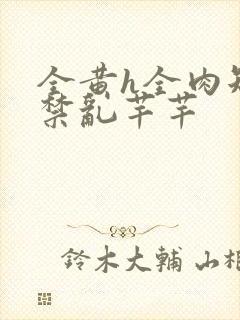 全黄h全肉短
禁乱芊芊
鈴木大輔 山相